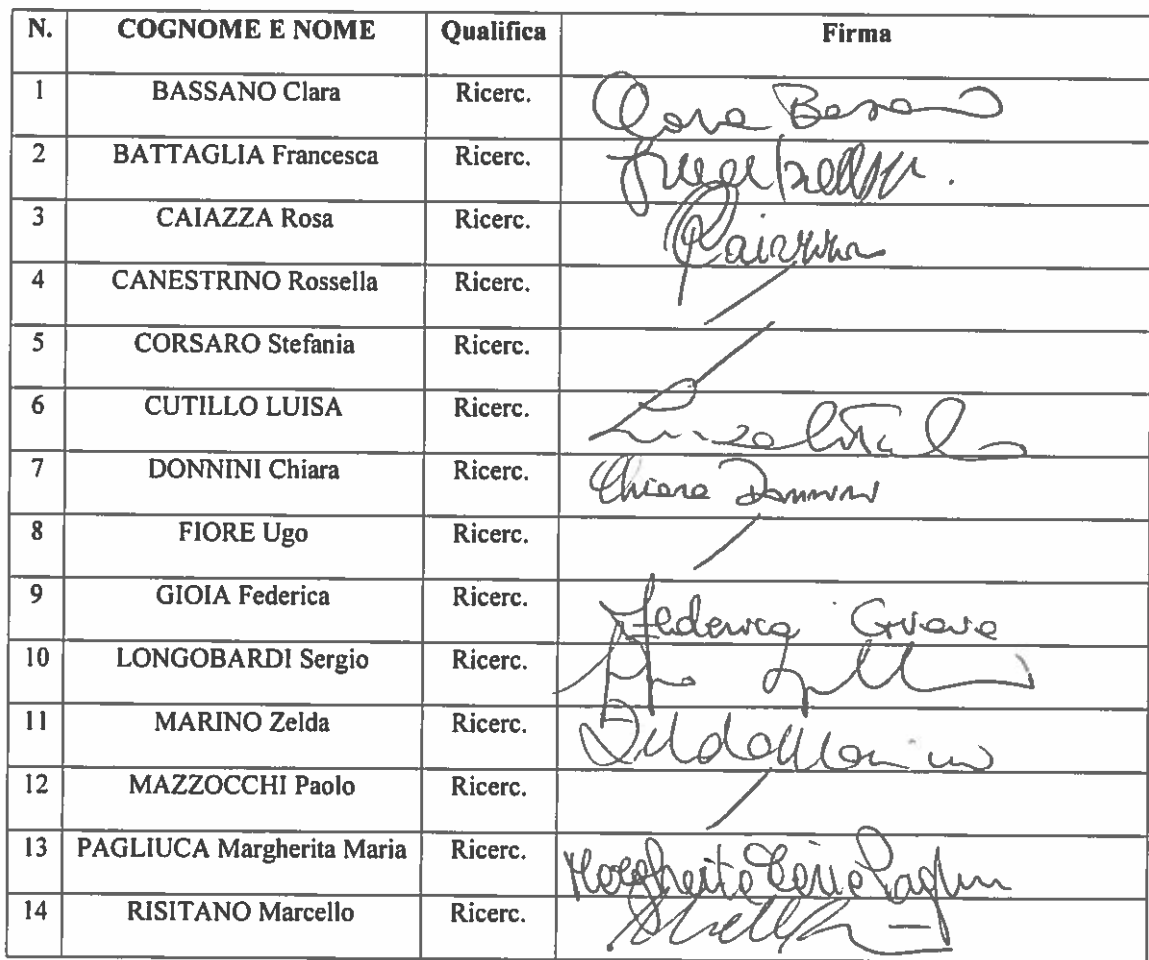 N. COGNOME E NOME Qualifica Firma
1 BASSANO Clara Ricerc. Clara Bassano
2 BATTAGLIA Francesca Ricerc.
3 CAIAZZA Rosa Ricerc. RCaiazza
4 CANESTRINO Rossella Ricerc.
5 CORSARO Stefania Ricerc.
6 CUTILLO LUISA Ricerc. Luisa Cutillo
7 DONNINI Chiara Ricerc. Chiara Donnini
8 FIORE Ugo Ricerc.
9 GIOIA Federica Ricerc. Federica Gioia
10 LONGOBARDI Sergio Ricerc.
11 MARINO Zelda Ricerc. Zelda Marino
12 MAZZOCCHI Paolo Ricerc.
13 PAGLIUCA Margherita Maria Ricerc. Margherita Maria Pagliuca
14 RISITANO Marcello Ricerc.